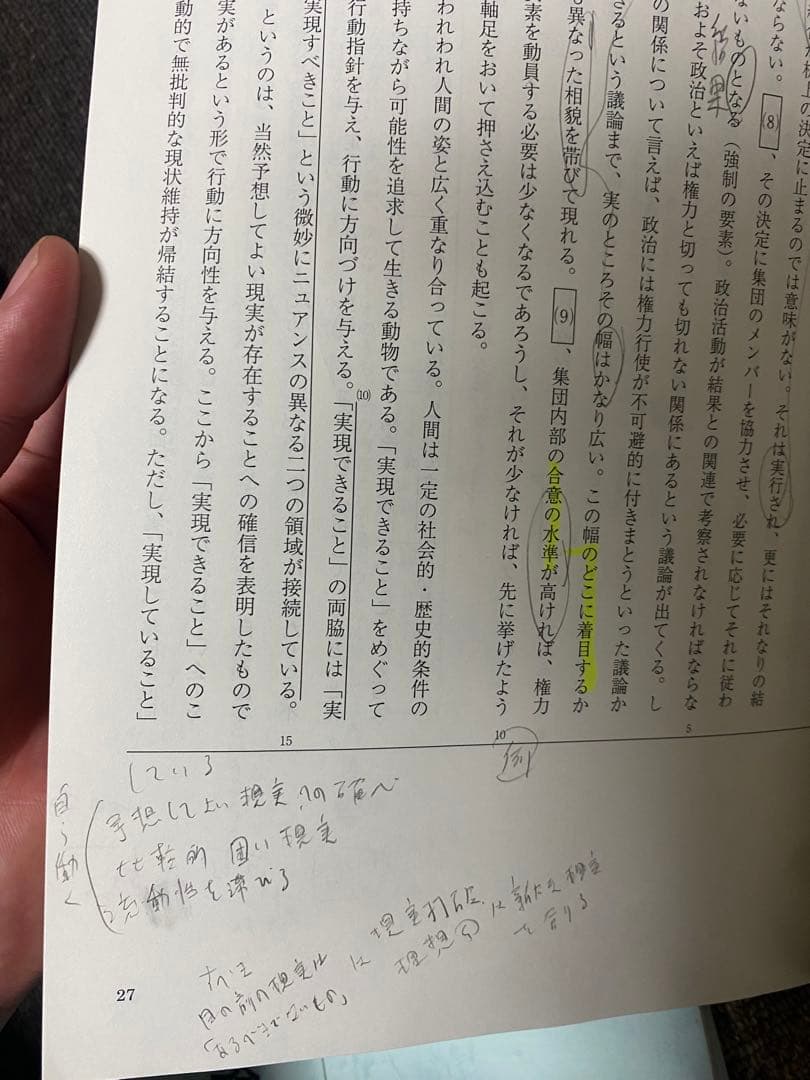 上の決定に止まるのでは意味がない。それは実行され、更にはそれなりの結
ならない。(8)、その決定に集団のメンバーを協力させ、必要に応じてそれに従わ
ないものとなる（強制の要素）。政治活動が結果との関連で考察されなければならな
およそ政治といえば権力と切っても切れない関係にあるという議論が出てくる。し
の関係について言えば、政治には権力行使が不可避的に付きまとうといった議論か
きるという議論まで、実のところその幅はかなり広い。この幅のどこに着目するか
も異なった相貌を帯びて現れる。(9)、集団内部の合意の水準が高ければ、権力
素を動員する必要は少なくなるであろうし、それが少なければ、先に挙げたよう
軸足をおいて押さえ込むことも起こる。
われわれ人間の姿と広く重なり合っている。人間は一定の社会的・歴史的条件の
持ちながら可能性を追求して生きる動物である。「実現できること」をめぐって
行動指針を与え、行動に方向づけを与える。(10)「実現できること」の両脇には「実
実現すべきこと」という微妙にニュアンスの異なる二つの領域が接続している。
というのは、当然予想してよい現実が存在することへの確信を表明したもので
実があるという形で行動に方向性を与える。ここから「実現できること」へのこ
動的で無批判的な現状維持が帰結することになる。ただし、「実現していること」
5
10
15
結果
例
している
予想してよい現実への確心
比較的固い現実
流動性を帯びる
自ら働く
目の前の現実は
「あるべきでないもの」
27